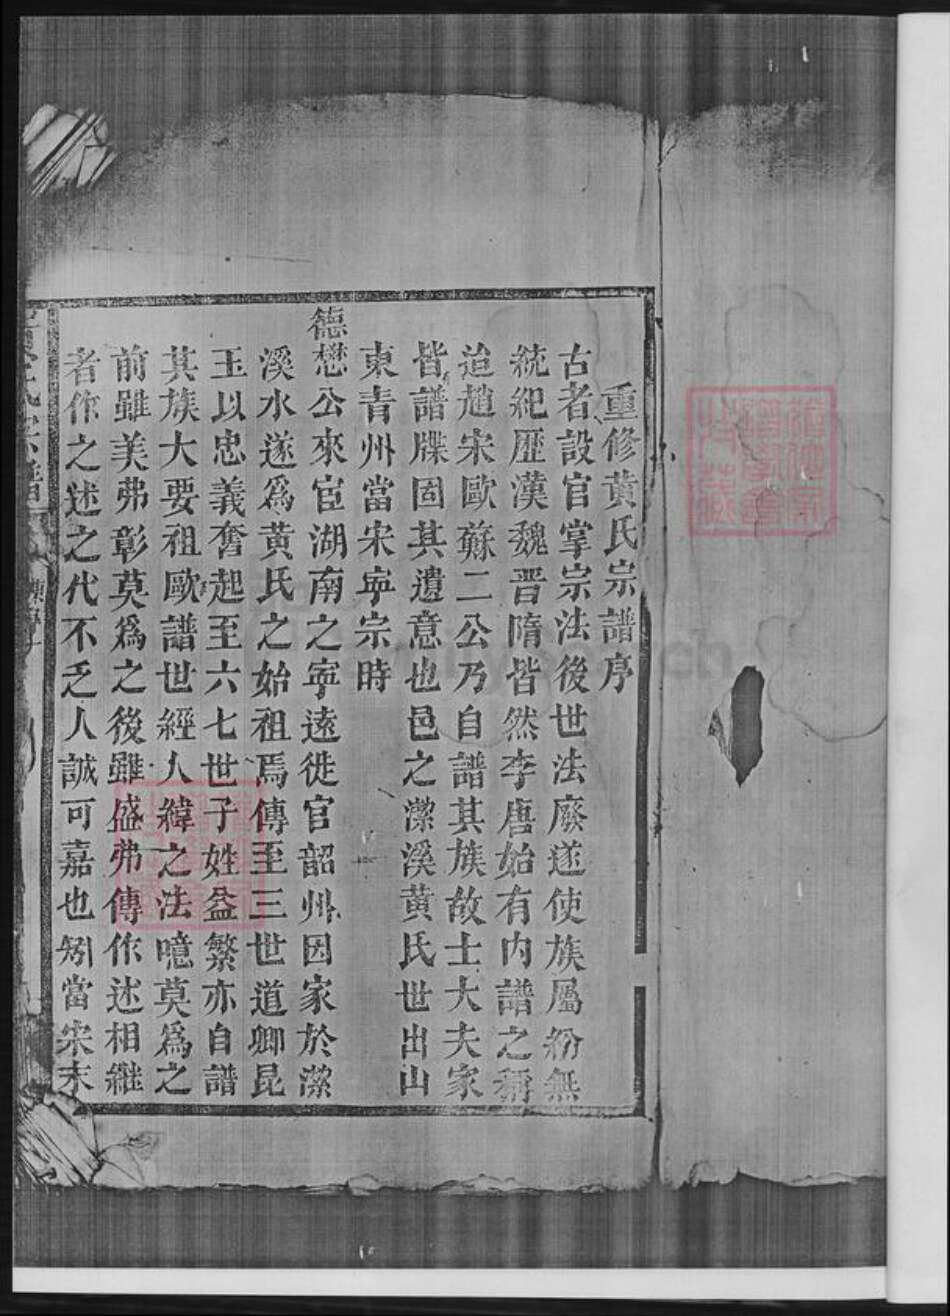 重修黄氏宗譜序
古者設官掌宗法後世法廢遂使族屬紛無
統紀歷漢魏晋隋皆然李唐始有内譜之稱
迨趙宋歐蘇二公乃自譜其族故士大夫家
皆譜牒固其遺意也邑之潔溪黄氏世出山
東青州當宋寧宗時
德懋公來宦湖南之寧遠徙官韶州因家於潔
溪水遂爲黄氏之始祖焉傳至三世道卿昆
玉以忠義奮起至六七世子姓益繁亦自譜
其族大要祖歐譜世經人緯之法噫莫爲之
前雖美弗彰莫爲之後雖盛弗傳作述相繼
者作之述之代不乏人誠可嘉也矧當宋末